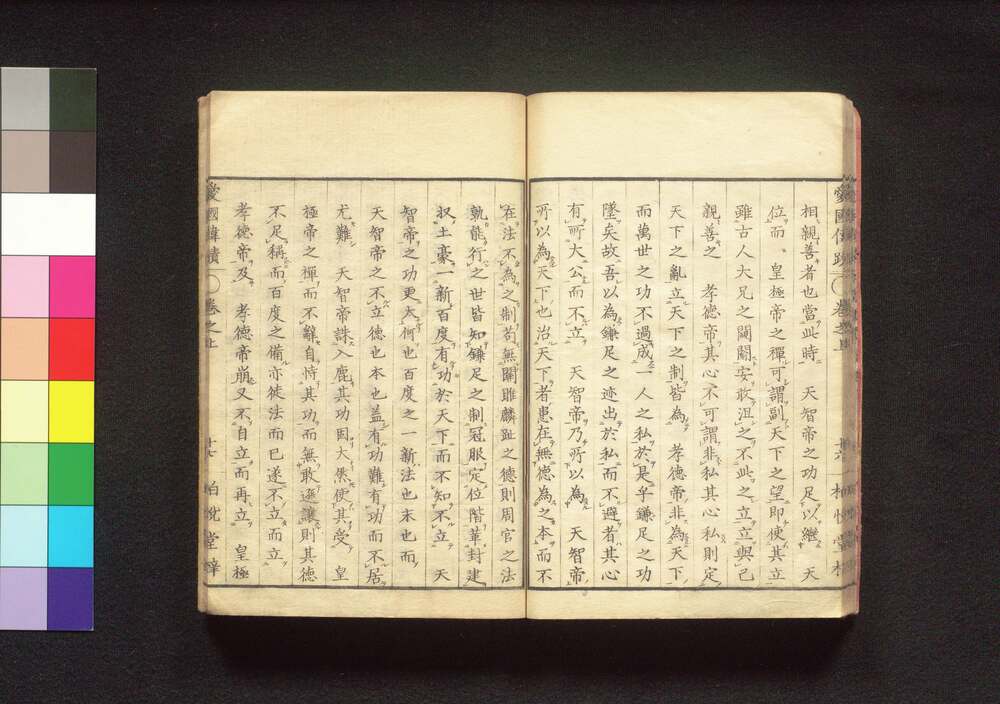 愛國偉蹟 卷之上 十六 柏悅堂梓
相親善者也當此時 天智帝之功足以繼 天
位而 皇極帝之禪可謂副天下之望即使其立
雖古人大兄之鬩鬩安敢沮之不此之立立與己
親善之 孝德帝其心不可謂非私其心私則定
天下之亂立天下之制皆為 孝德帝非為天下
而萬世之功不過成一人之私於是乎鎌足之功
墜矣故吾以為鎌足之迹出於私而不避者其心
有所大公而不立 天智帝乃所以為 天智帝
所以為天下也治天下者患在無德為之本而不
在法不為之制苟無關雎麟趾之德則周官之法
孰能行之世皆知鎌足之制冠服定位階革封建
收土豪一新百度有功於天下而不知不立 天
智帝之功更大何也百度之一新法也末也而
天智帝之不立德也本也蓋有功難有功而不居
尤難 天智帝誅入鹿其功固大然使其受 皇
極帝之禪而不辭自恃其功而無敢遜讓則其德
不足稱而百度之備亦徒法而已遂不立而立
孝德帝及 孝德帝崩又不自立而再立 皇極
愛國偉蹟 卷之上 十七 柏悅堂梓